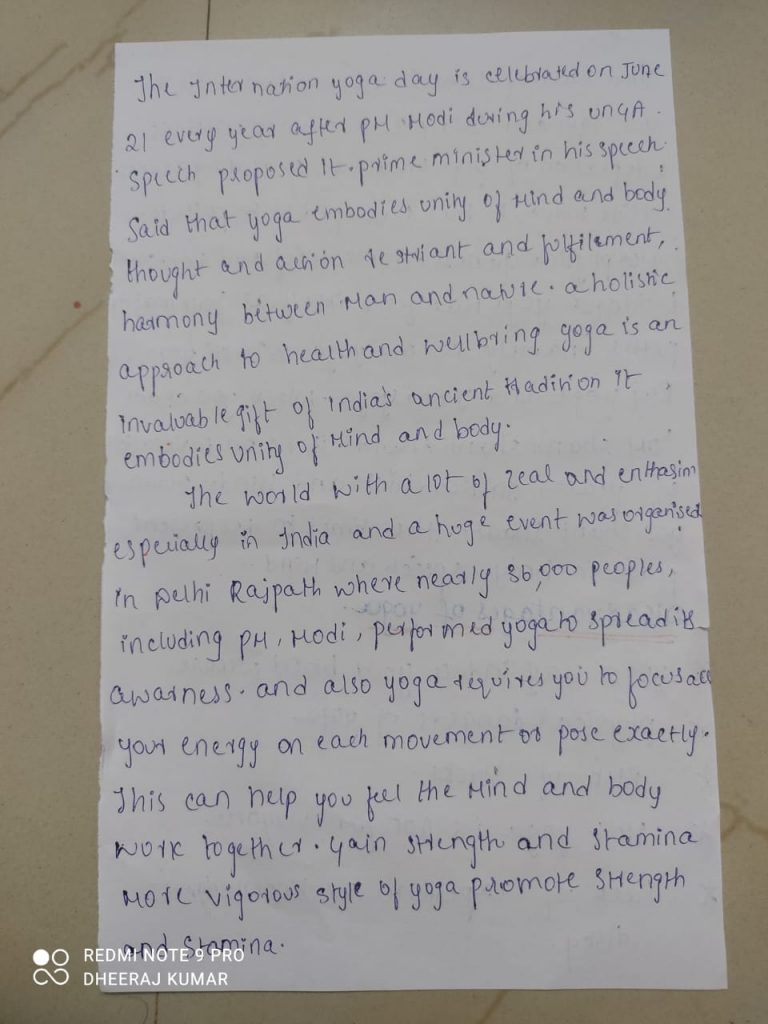 The Internation yoga day is celebrated on June
21 every year after PM Modi during his UNGA.
Speech proposed It. prime minister in his speech
Said that yoga embodies unity of Mind and body
thought and action restriant and fulfilement,
harmony between Man and nature. a holistic
approach to health and wellbring yoga is an
invaluable gift of India's ancient tradition It
embodies unity of Mind and body.
The world with a lot of zeal and enthasim
especially in India and a huge event was organised
in Delhi Rajpath where nearly 36,000 peoples,
including PM, Modi, performed yoga to spread its
awarness. and also yoga requires you to focus all
your energy on each movement or pose exactly.
This can help you feel the Mind and body
work together. Gain strength and stamina
More vigorous style of yoga promote strength
and stamina.
REDMI NOTE 9 PRO
DHEERAJ KUMAR